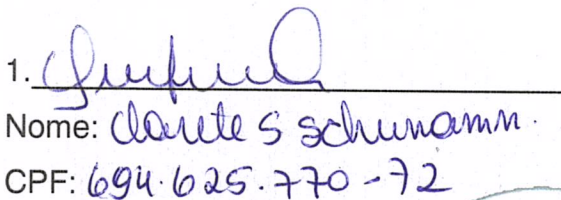 1.
Nome: Clarete S Schunamn.
CPF: 694.625.770-72